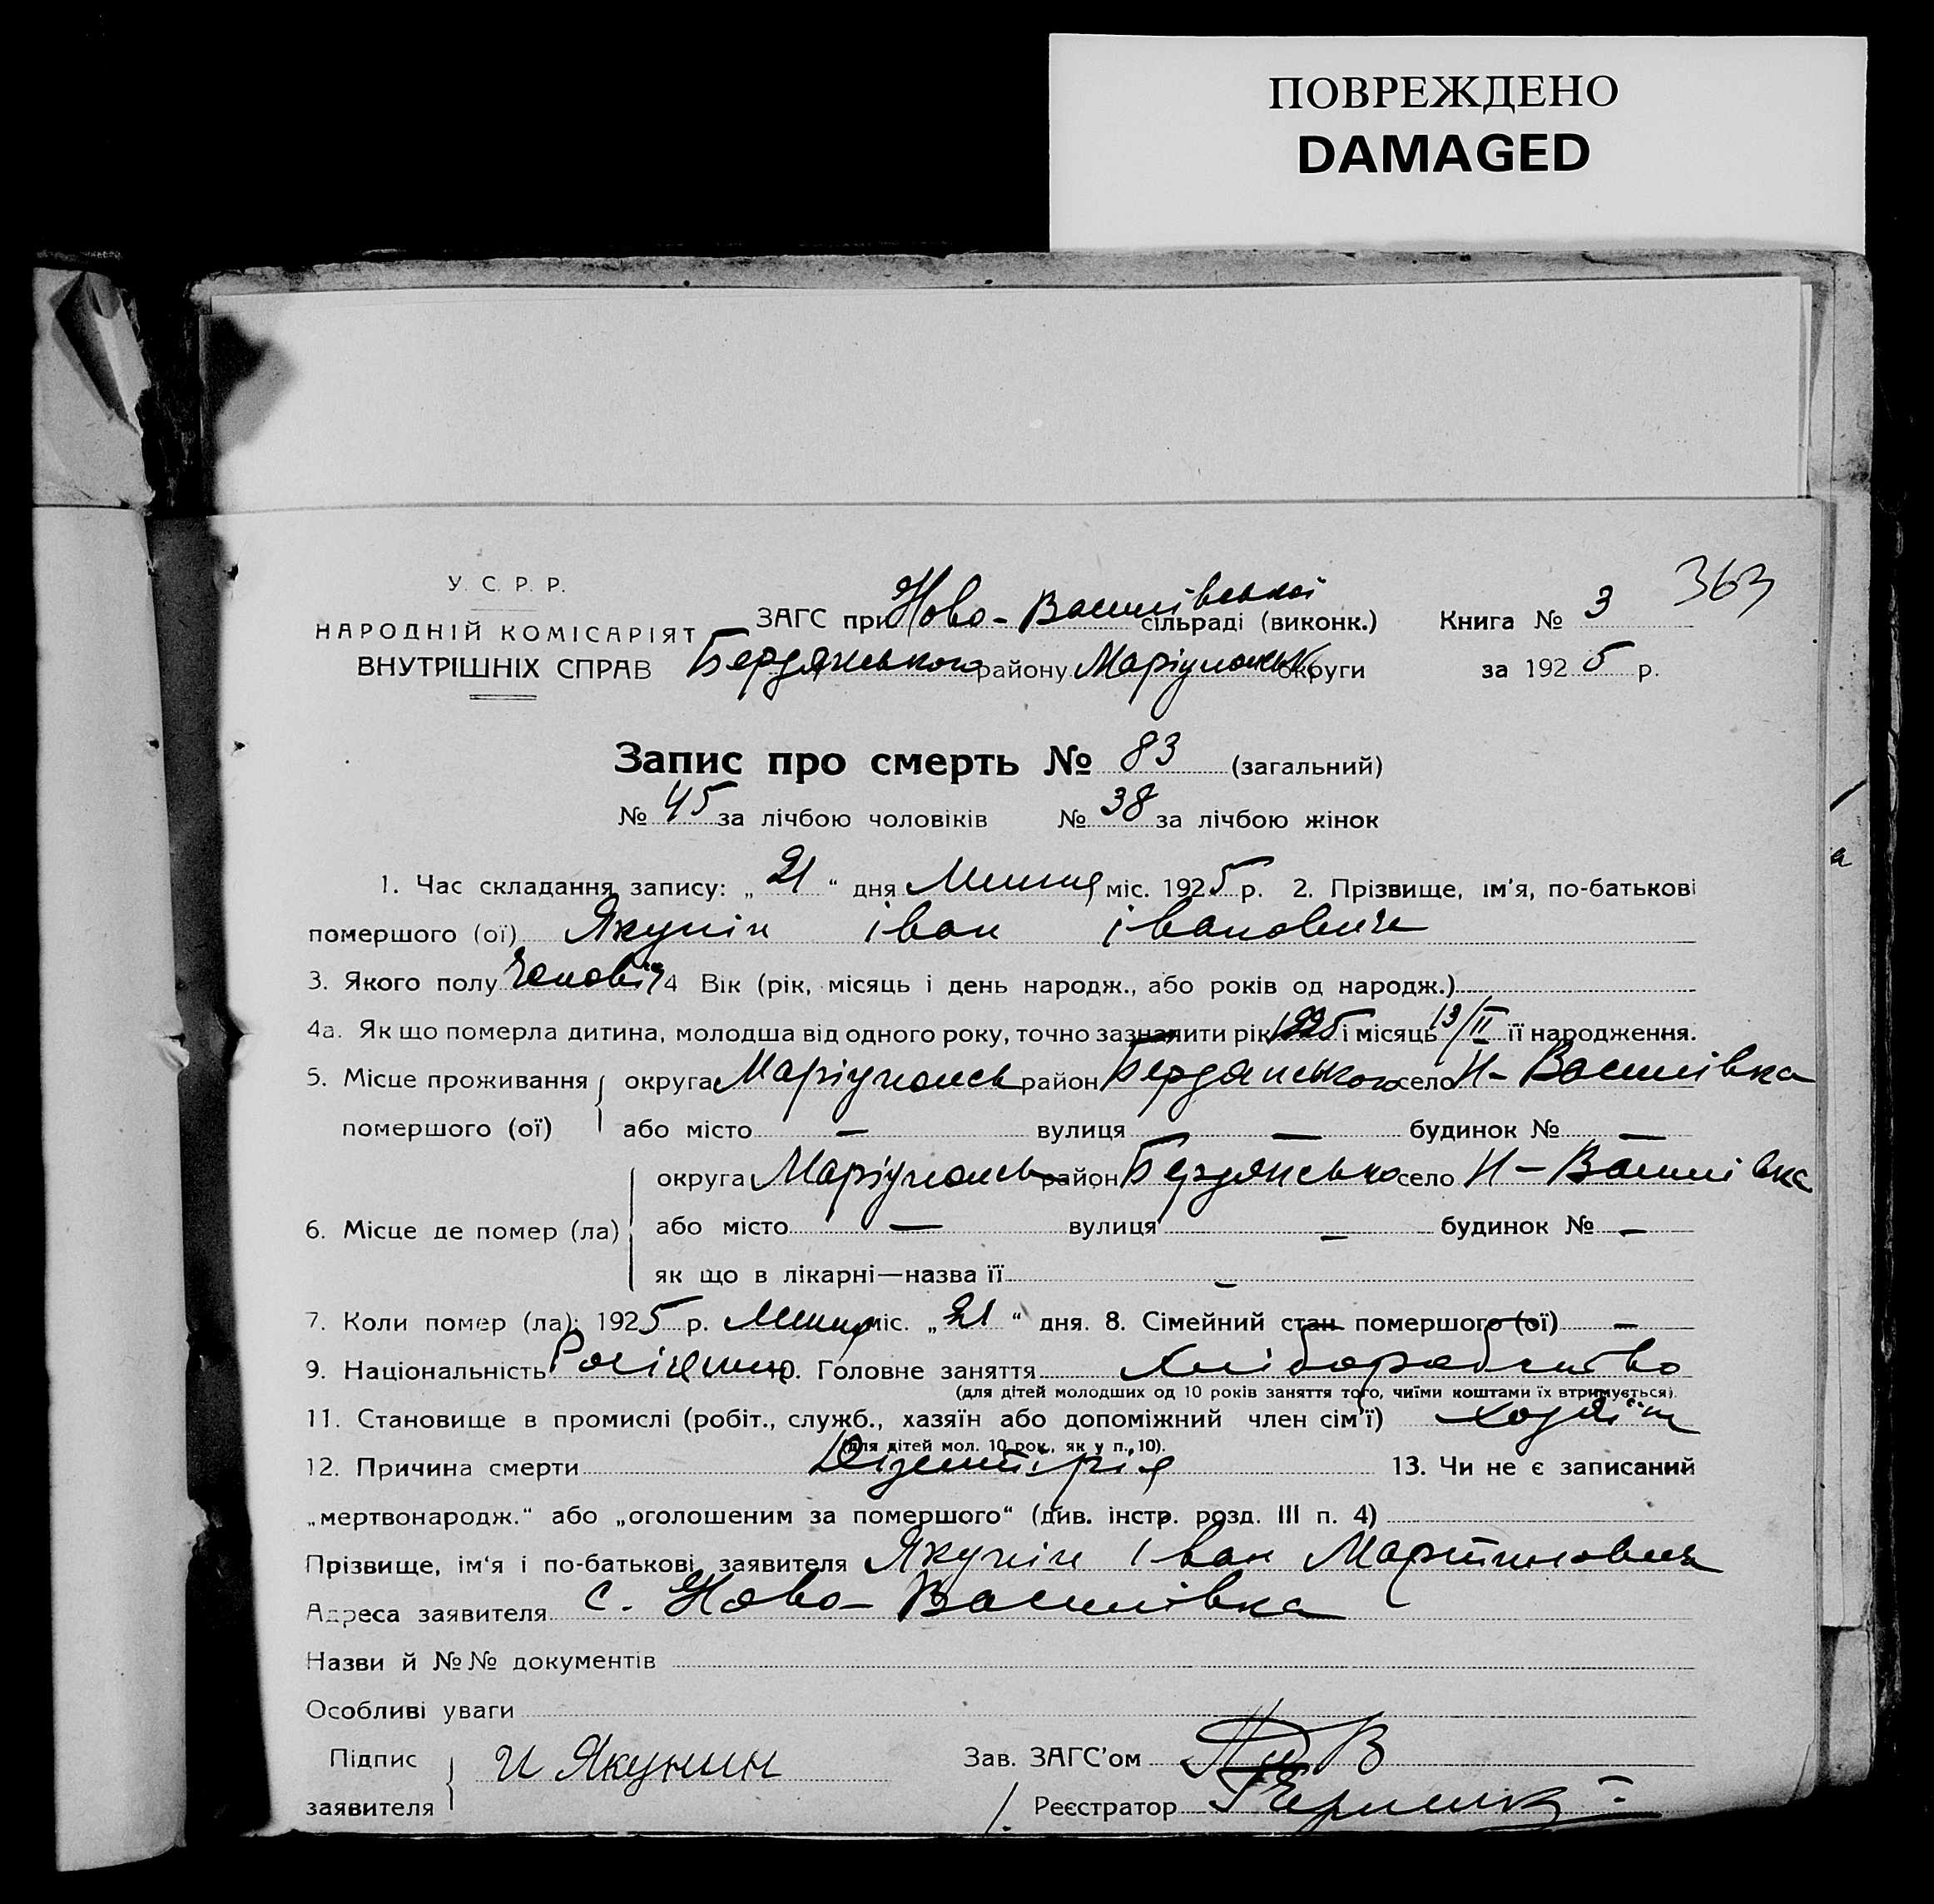 ПОВРЕЖДЕНО
DAMAGED
363
У. С. Р. Р.
НАРОДНІЙ КОМІСАРІЯТ
ВНУТРІШНІХ СПРАВ
ЗАГС при Ново-Василівської сільраді (виконк.)
Бердянського району Маріупольськ округи
Книга № 3
за 1925 р.
Запис про смерть № 83 (загальний)
№ 45 за лічбою чоловіків № 38 за лічбою жінок
1. Час складання запису: „21“ дня Липня міс. 1925 р. 2. Прізвище, ім'я, по-батькові
помершого (ої) Якунін іван івановича
3. Якого полу Чоловіч 4 Вік (рік, місяць і день народж., або років од народж.)
4а. Як що померла дитина, молодша від одного року, точно зазначити рік 1925 і місяць 13/II її народження.
5. Місце проживання помершого (ої) округа Маріупольськ район Бердянського село Н-Василівка
або місто — вулиця — будинок № —
6. Місце де помер (ла) округа Маріупольськ район Бердянсько село Н-Василівка
або місто — вулиця — будинок № —
як що в лікарні—назва її —
7. Коли помер (ла): 1925 р. Липня міс. „21“ дня. 8. Сімейний стан помершого (ої) —
9. Національність 10. Головне заняття Хліборобство
(для дітей молодших од 10 років заняття того, чиїми коштами їх втримується).
11. Становище в промислі (робіт., служб., хазяїн або допоміжний член сім'ї) хозяїн
(для дітей мол. 10 рок., як у п. 10).
12. Причина смерти Дізентірія 13. Чи не є записаний
„мертвонародж.“ або „оголошеним за помершого“ (див. інстр. розд. III п. 4)
Прізвище, ім‘я і по-батькові заявителя Якунін Іван Мартинович
Адреса заявителя с. Ново-Василівка
Назви й №№ документів
Особливі уваги
Підпис заявителя И Якунин
Зав. ЗАГС'ом
Реєстратор